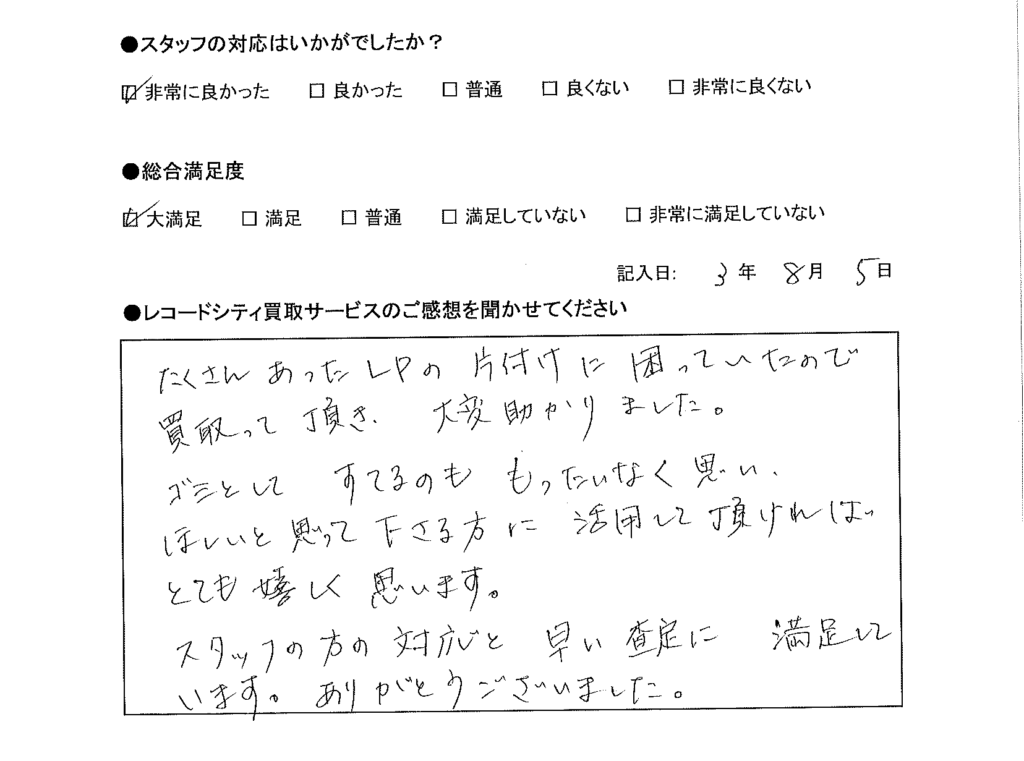 ●スタッフの対応はいかがでしたか？
☑ 非常に良かった □ 良かった □ 普通 □ 良くない □ 非常に良くない
●総合満足度
☑ 大満足 □ 満足 □ 普通 □ 満足していない □ 非常に満足していない
記入日: 3年 8月 5日
●レコードシティ買取サービスのご感想を聞かせてください
たくさんあったLPの片付けに困っていたので
買取って頂き、大変助かりました。
ゴミとしてすてるのももったいなく思い、
ほしいと思って下さる方に活用して頂ければ
とても嬉しく思います。
スタッフの方の対応と早い査定に満足して
います。ありがとうございました。